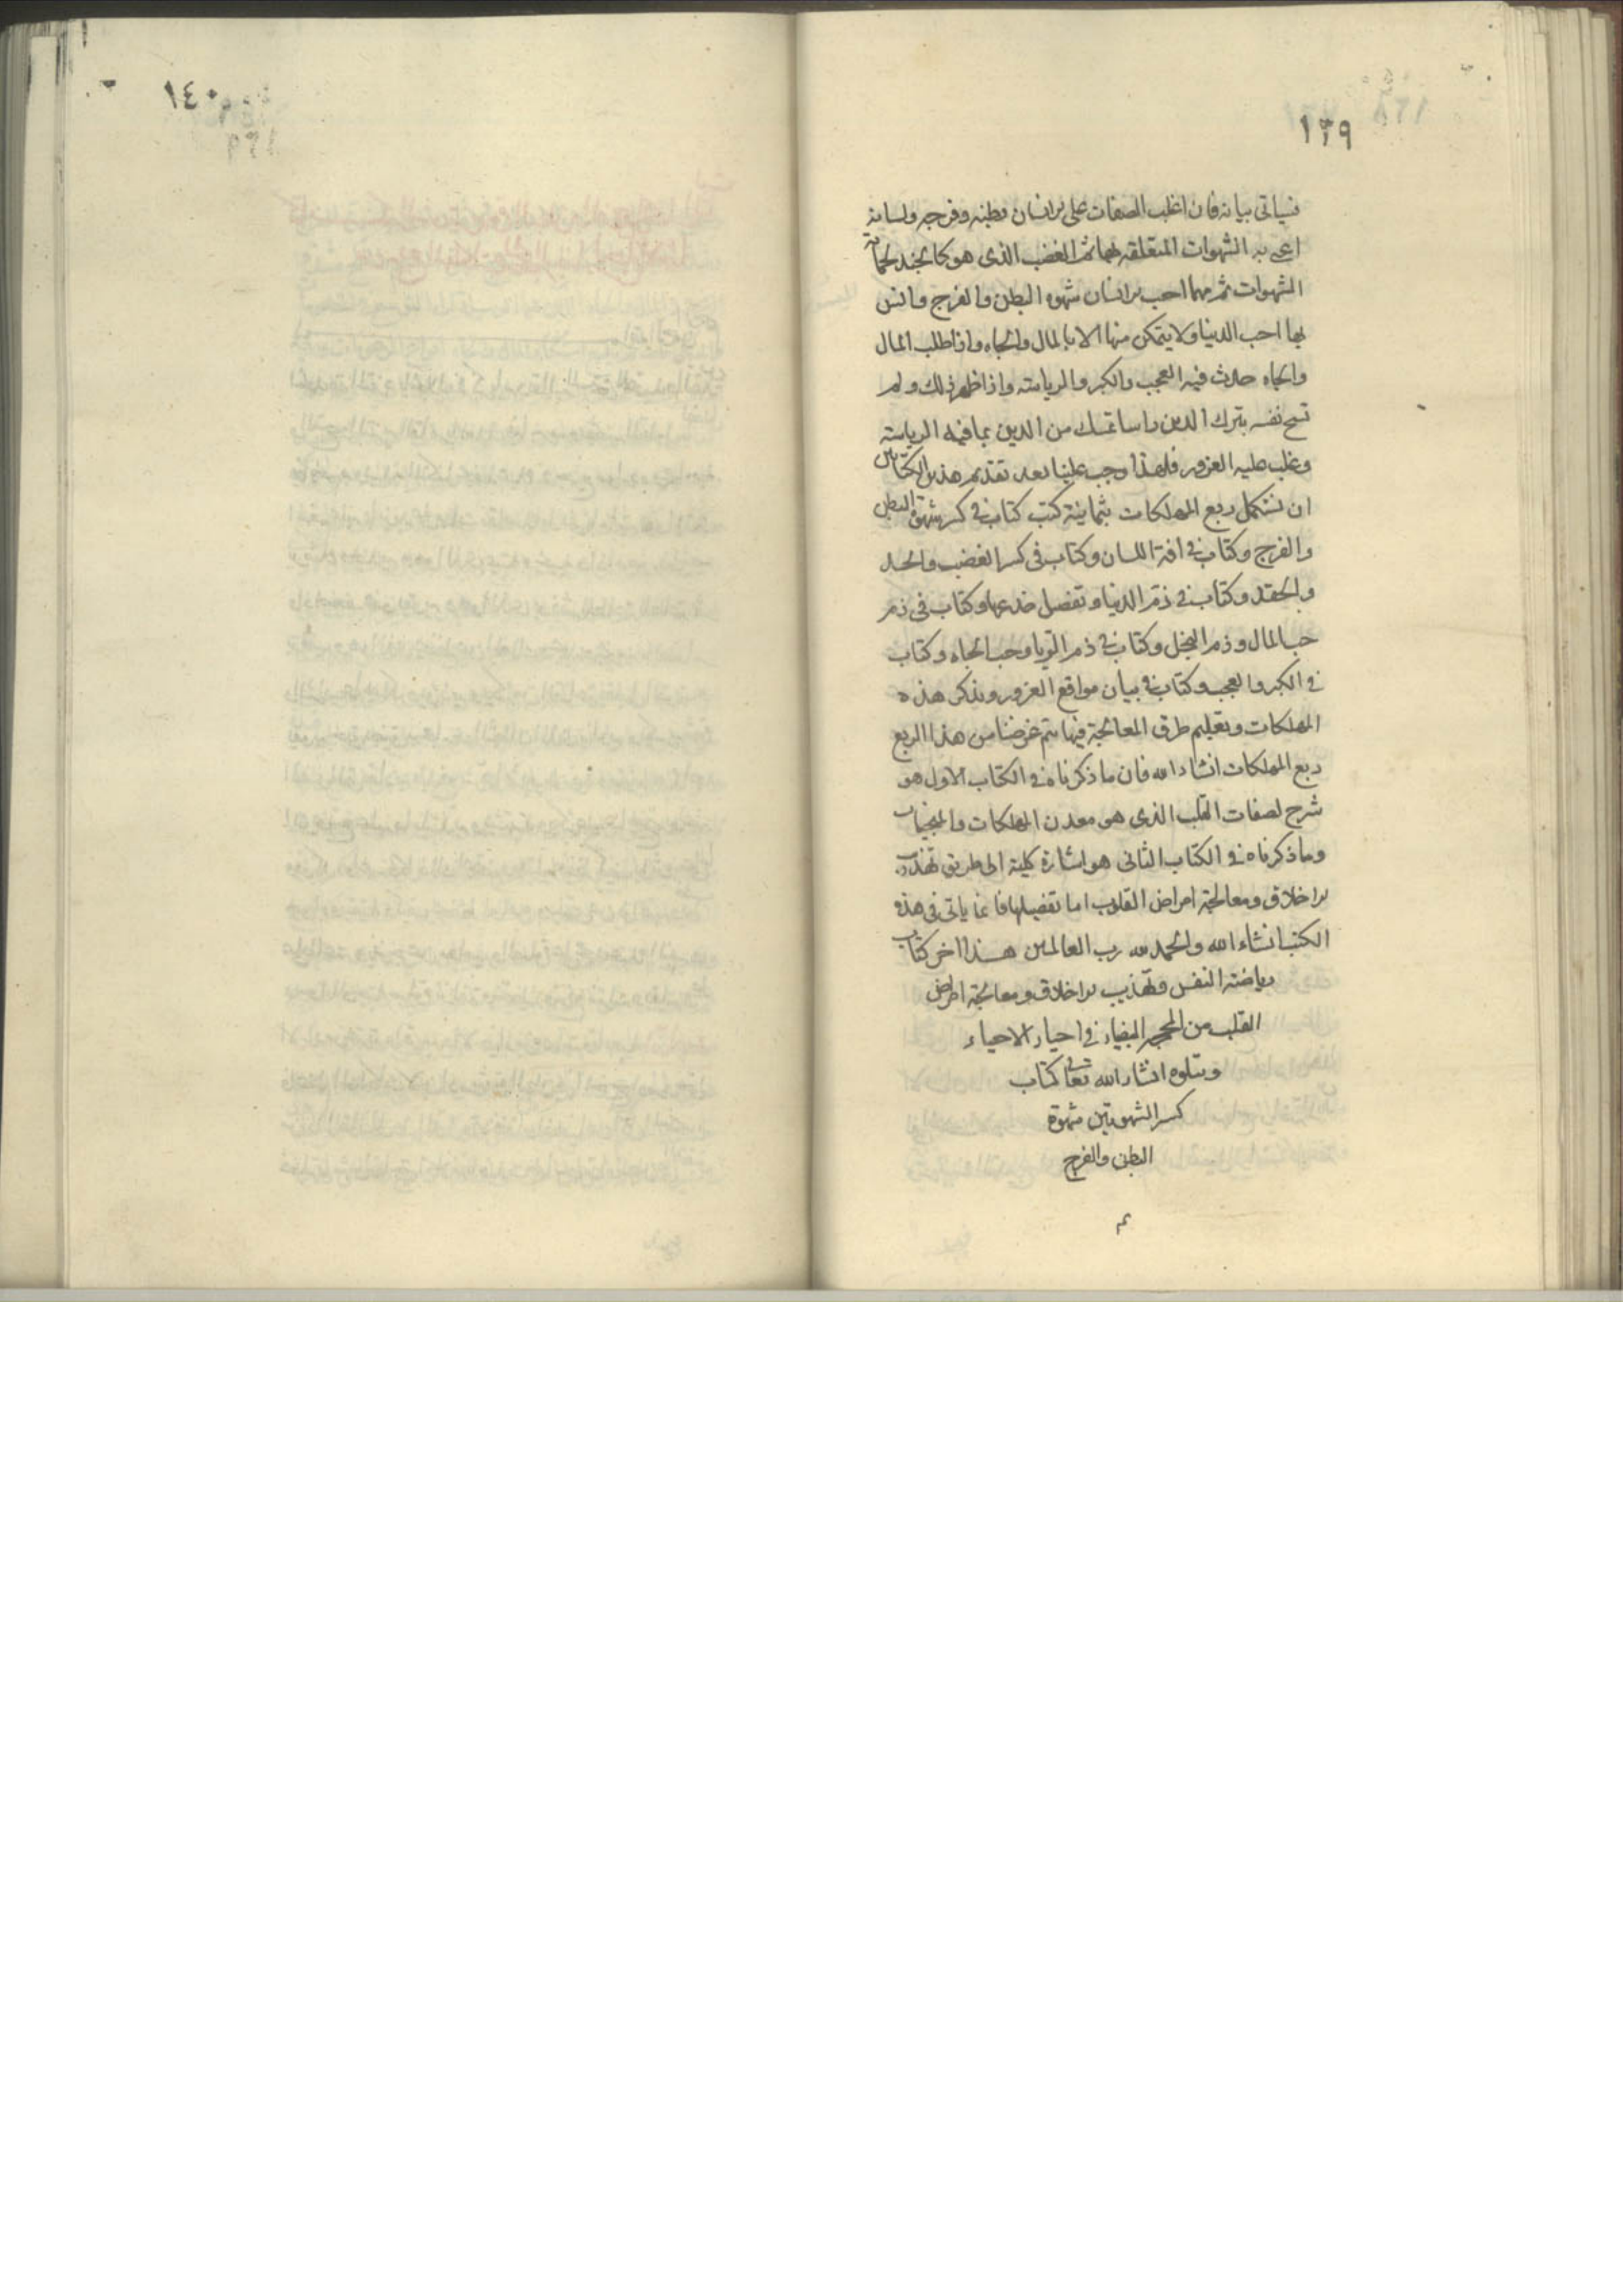 ١٣٩
فسياتى بيانه فان اغلب الصفات على الانسان بطنه وفرجه ولسانه
اعنى به الشهوات المتعلقه بهما ثم الغضب الذى هو كالجند لحماية
الشهوات ثم مهما احب الانسان شهوه البطن والفرج وانس
بها احب الدنيا ولا يتمكن منها الا بالمال والجاه واذا طلب المال
والجاه حدث فيه العجب والكبر والرياسته واذا ظهر ذلك ولم
تسمح نفسه بترك الدين راسا تمسك من الدين بما فيه الرياسته
وغلب عليه الغرور فلهذا وجب علينا بعد تقديم هذين الكتابين
ان نستكمل ربع المهلكات بثمانية كتب كتاب فى كسر شهوة البطن
والفرج وكتاب فى افة اللسان وكتاب فى كسر الغضب والحسد
والحقد وكتاب فى ذم الدنيا وتفصيل خدعها وكتاب فى ذم
حب المال وذم البخل وكتاب فى ذم الريا وحب الجاه وكتاب
فى الكبر والعجب وكتاب فى بيان مواقع الغرور وبذكر هذه
المهلكات وتعليم طرق المعالجة فيها يتم غرضنا من هذا الربع
ربع المهلكات انشاء الله فان ما ذكرناه فى الكتاب الاول هو
شرح لصفات القلب الذى هو معدن المهلكات والمنجيات
وما ذكرناه فى الكتاب الثانى هو اشارة كلية الى طريق تهذيب
الاخلاق ومعالجة امراض القلوب اما تفصيلها فانما ياتى فى هذه
الكتب انشاء الله والحمد لله رب العالمين هذا اخر كتاب
رياضته النفس وتهذيب الاخلاق ومعالجة امراض
القلب من المحجة البيضاء فى احياء الاحياء
ويتلوه انشاء الله تعالى كتاب
كسر الشهوتين شهوة
البطن والفرج
١٤٠